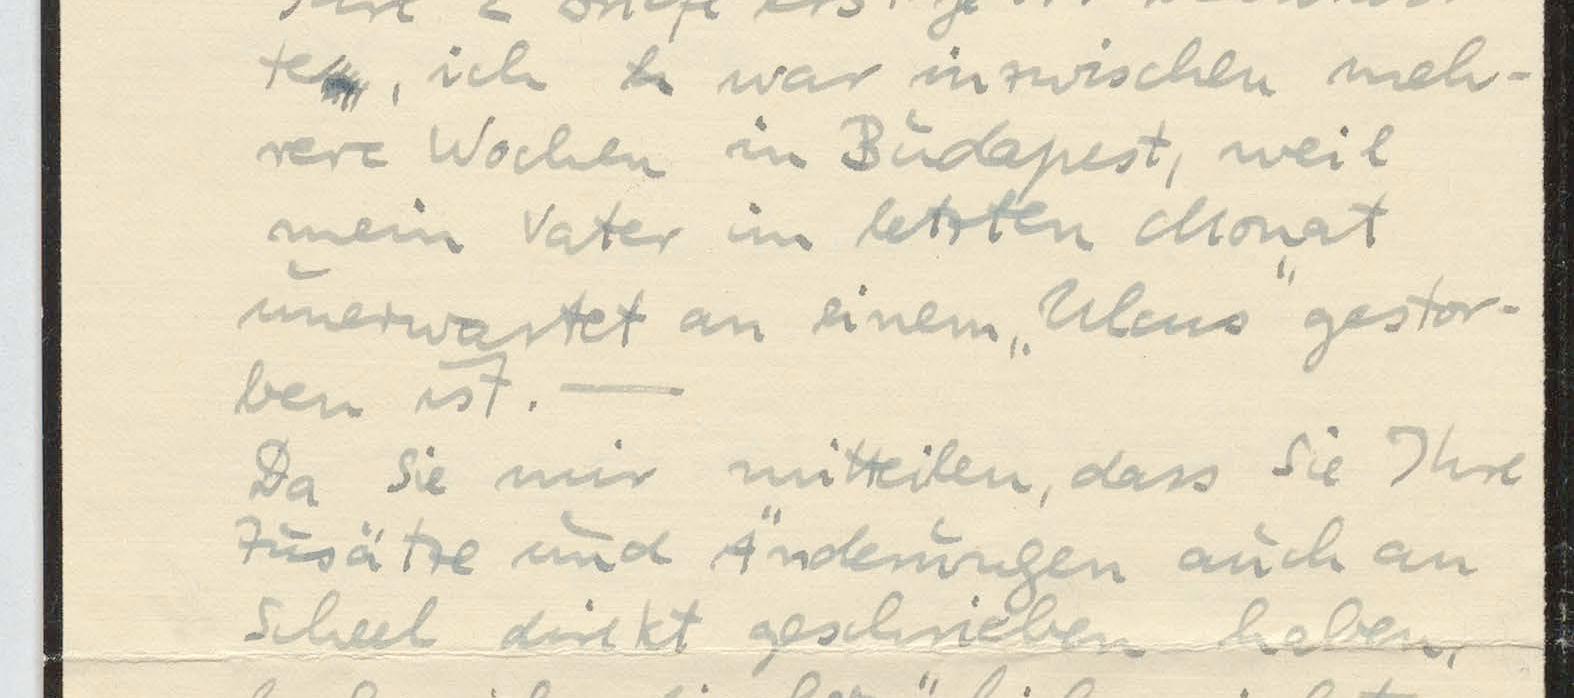 Ihre 2 Briefe erst jetzt
te, ich war inzwischen meh-
rere Wochen in Budapest, weil
mein Vater im letzten Monat
unerwartet an einem „Ulcus" gestor-
ben ist. —
Da Sie mir mitteilen, dass Sie Ihre
Zusätze und Änderungen auch an
Scheel direkt geschrieben haben,